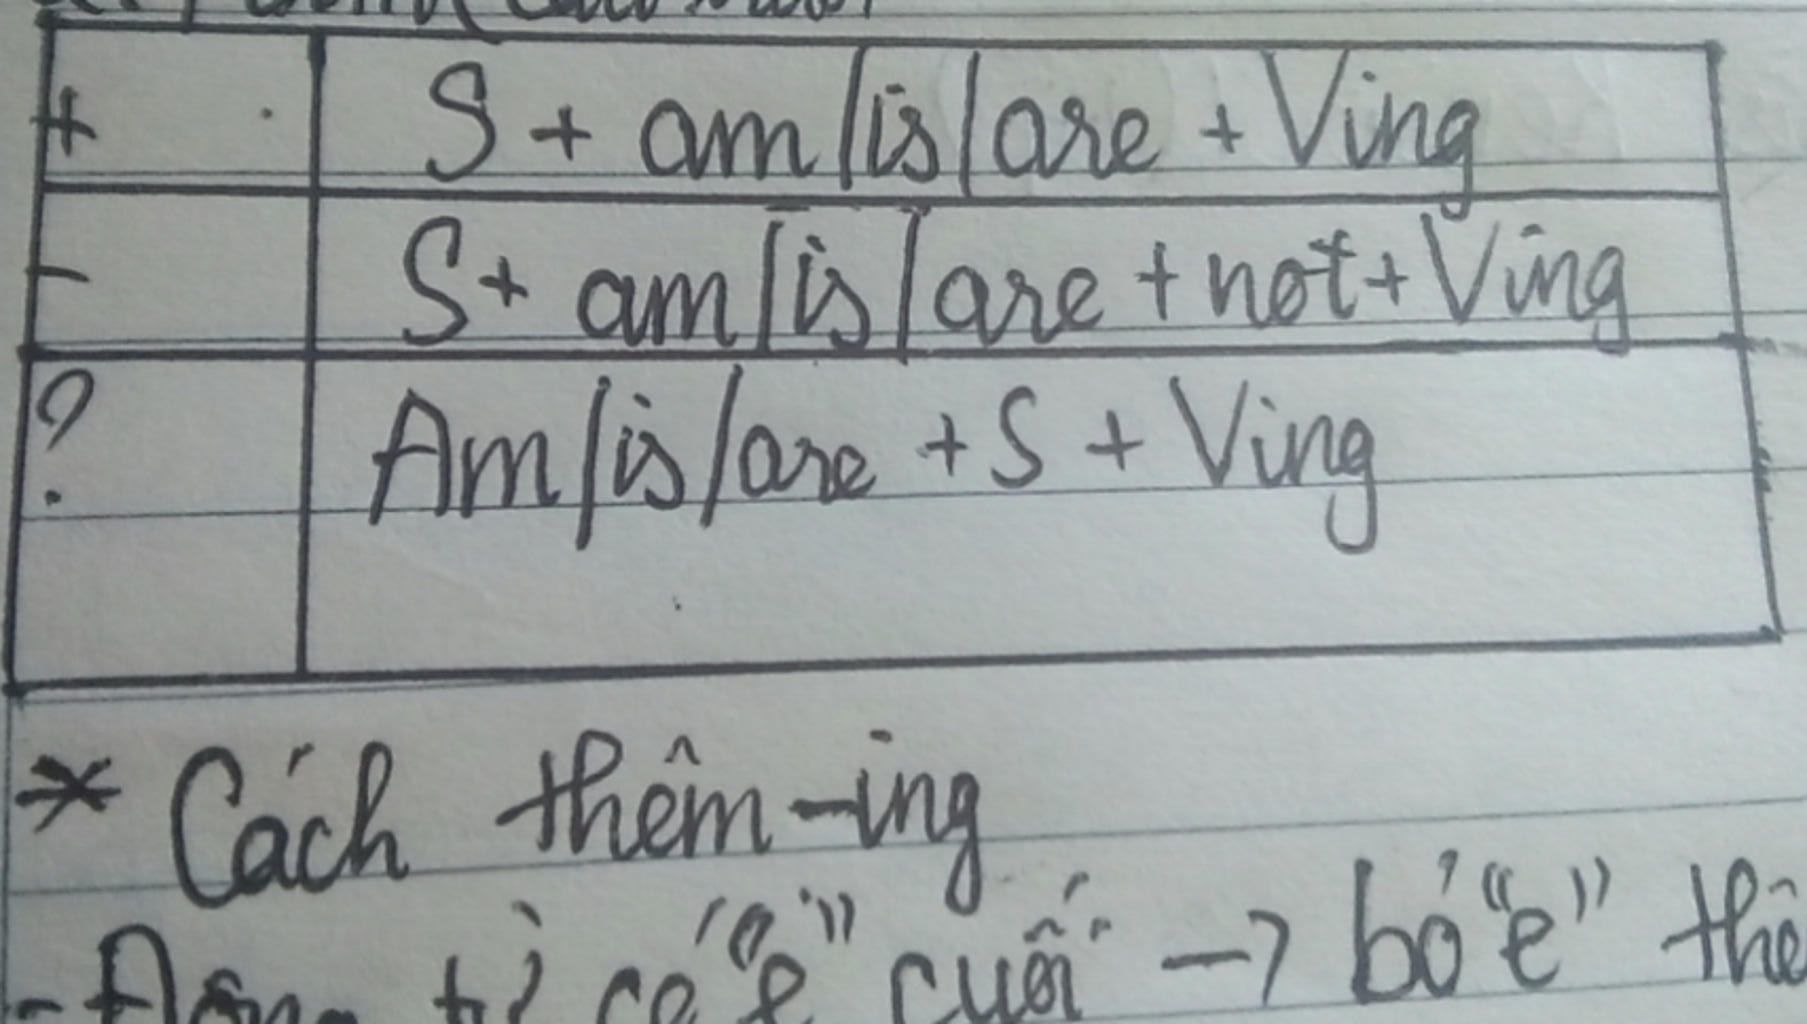 + S + am/is/are + Ving
- S + am/is/are + not + Ving
? Am/is/are + S + Ving
* Cách thêm -ing
- Động từ có "e" cuối → bỏ "e"